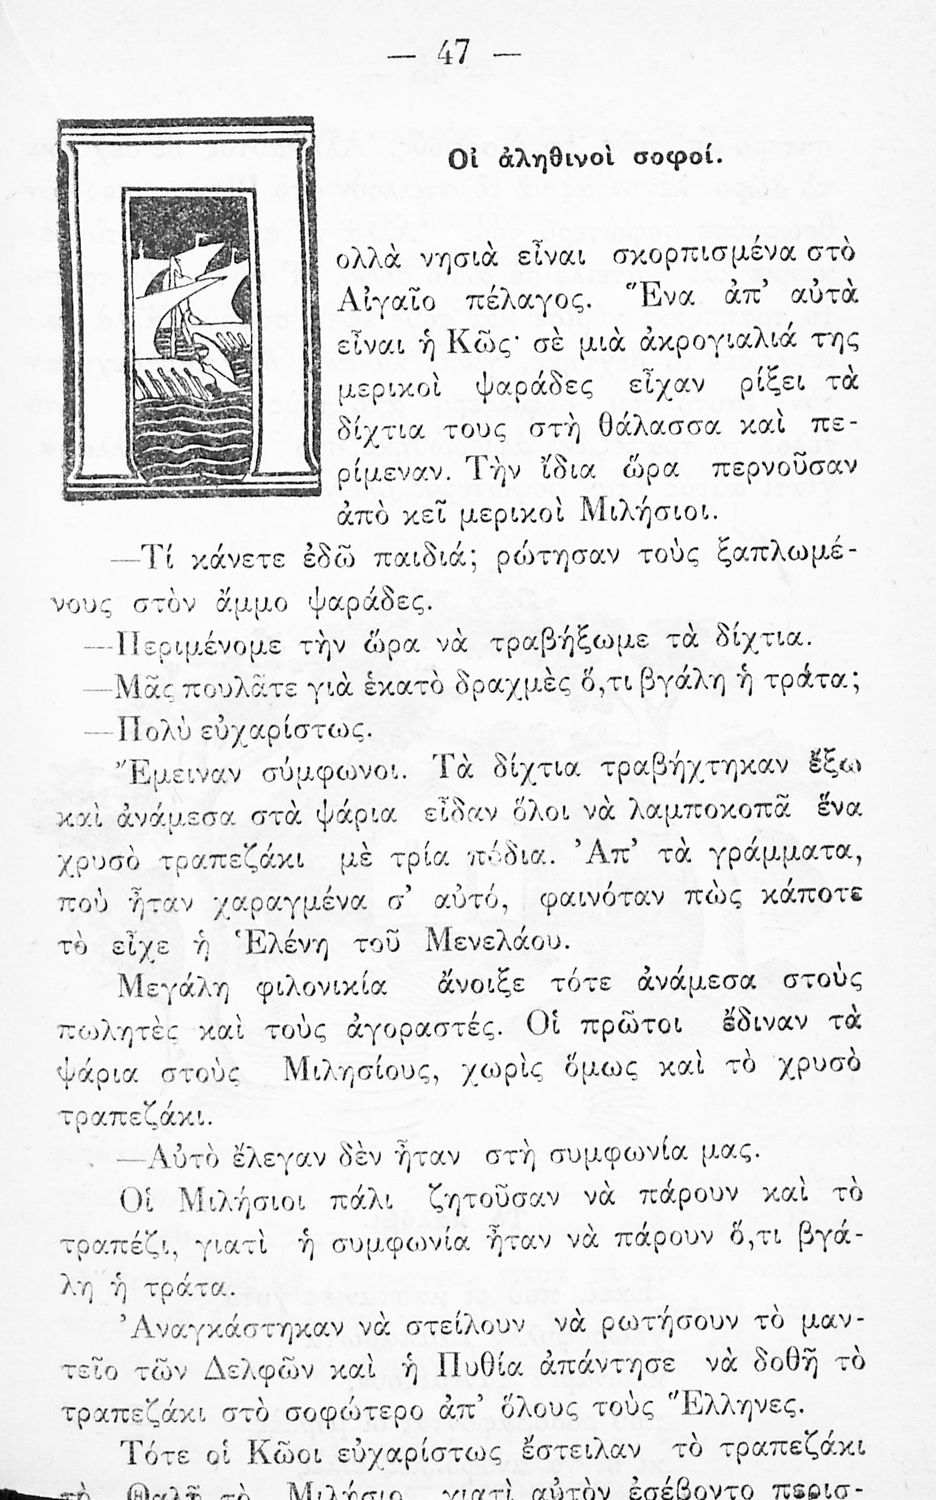 — 47 —
Οἱ ἀληθινοὶ σοφοί.
ολλὰ νησιὰ εἶναι σκορπισμένα στὸ
Αἰγαῖο πέλαγος. Ἕνα ἀπ’ αὐτὰ
εἶναι ἡ Κῶς· σὲ μιὰ ἀκρογιαλιά της
μερικοὶ ψαράδες εἶχαν ρίξει τὰ
δίχτια τους στὴ θάλασσα καὶ πε-
ρίμεναν. Τὴν ἴδια ὥρα περνοῦσαν
ἀπὸ κεῖ μερικοὶ Μιλήσιοι.
—Τί κάνετε ἐδῶ παιδιά; ρώτησαν τοὺς ξαπλωμέ-
νους στὸν ἄμμο ψαράδες.
—Περιμένομε τὴν ὥρα νὰ τραβήξωμε τὰ δίχτια.
—Μᾶς πουλᾶτε γιὰ ἑκατὸ δραχμὲς ὅ,τι βγάλη ἡ τράτα;
—Πολὺ εὐχαρίστως.
Ἔμειναν σύμφωνοι. Τὰ δίχτια τραβήχτηκαν ἔξω
καὶ ἀνάμεσα στὰ ψάρια εἶδαν ὅλοι νὰ λαμποκοπᾶ ἕνα
χρυσὸ τραπεζάκι μὲ τρία πόδια. Ἀπ’ τὰ γράμματα,
ποὺ ἦταν χαραγμένα σ’ αὐτό, φαινόταν πὼς κάποτε
τὸ εἶχε ἡ Ἑλένη τοῦ Μενελάου.
Μεγάλη φιλονικία ἄνοιξε τότε ἀνάμεσα στοὺς
πωλητὲς καὶ τοὺς ἀγοραστές. Οἱ πρῶτοι ἔδιναν τὰ
ψάρια στοὺς Μιλησίους, χωρὶς ὅμως καὶ τὸ χρυσὸ
τραπεζάκι.
—Αὐτὸ ἔλεγαν δὲν ἦταν στὴ συμφωνία μας.
Οἱ Μιλήσιοι πάλι ζητοῦσαν νὰ πάρουν καὶ τὸ
τραπέζι, γιατὶ ἡ συμφωνία ἦταν νὰ πάρουν ὅ,τι βγά-
λη ἡ τράτα.
Ἀναγκάστηκαν νὰ στείλουν νὰ ρωτήσουν τὸ μαν-
τεῖο τῶν Δελφῶν καὶ ἡ Πυθία ἀπάντησε νὰ δοθῆ τὸ
τραπεζάκι στὸ σοφώτερο ἀπ’ ὅλους τοὺς Ἕλληνες.
Τότε οἱ Κῶοι εὐχαρίστως ἔστειλαν τὸ τραπεζάκι
στὸ Θαλῆ τὸ Μιλήσιο, γιατὶ αὐτὸν ἐσέβοντο περισ-